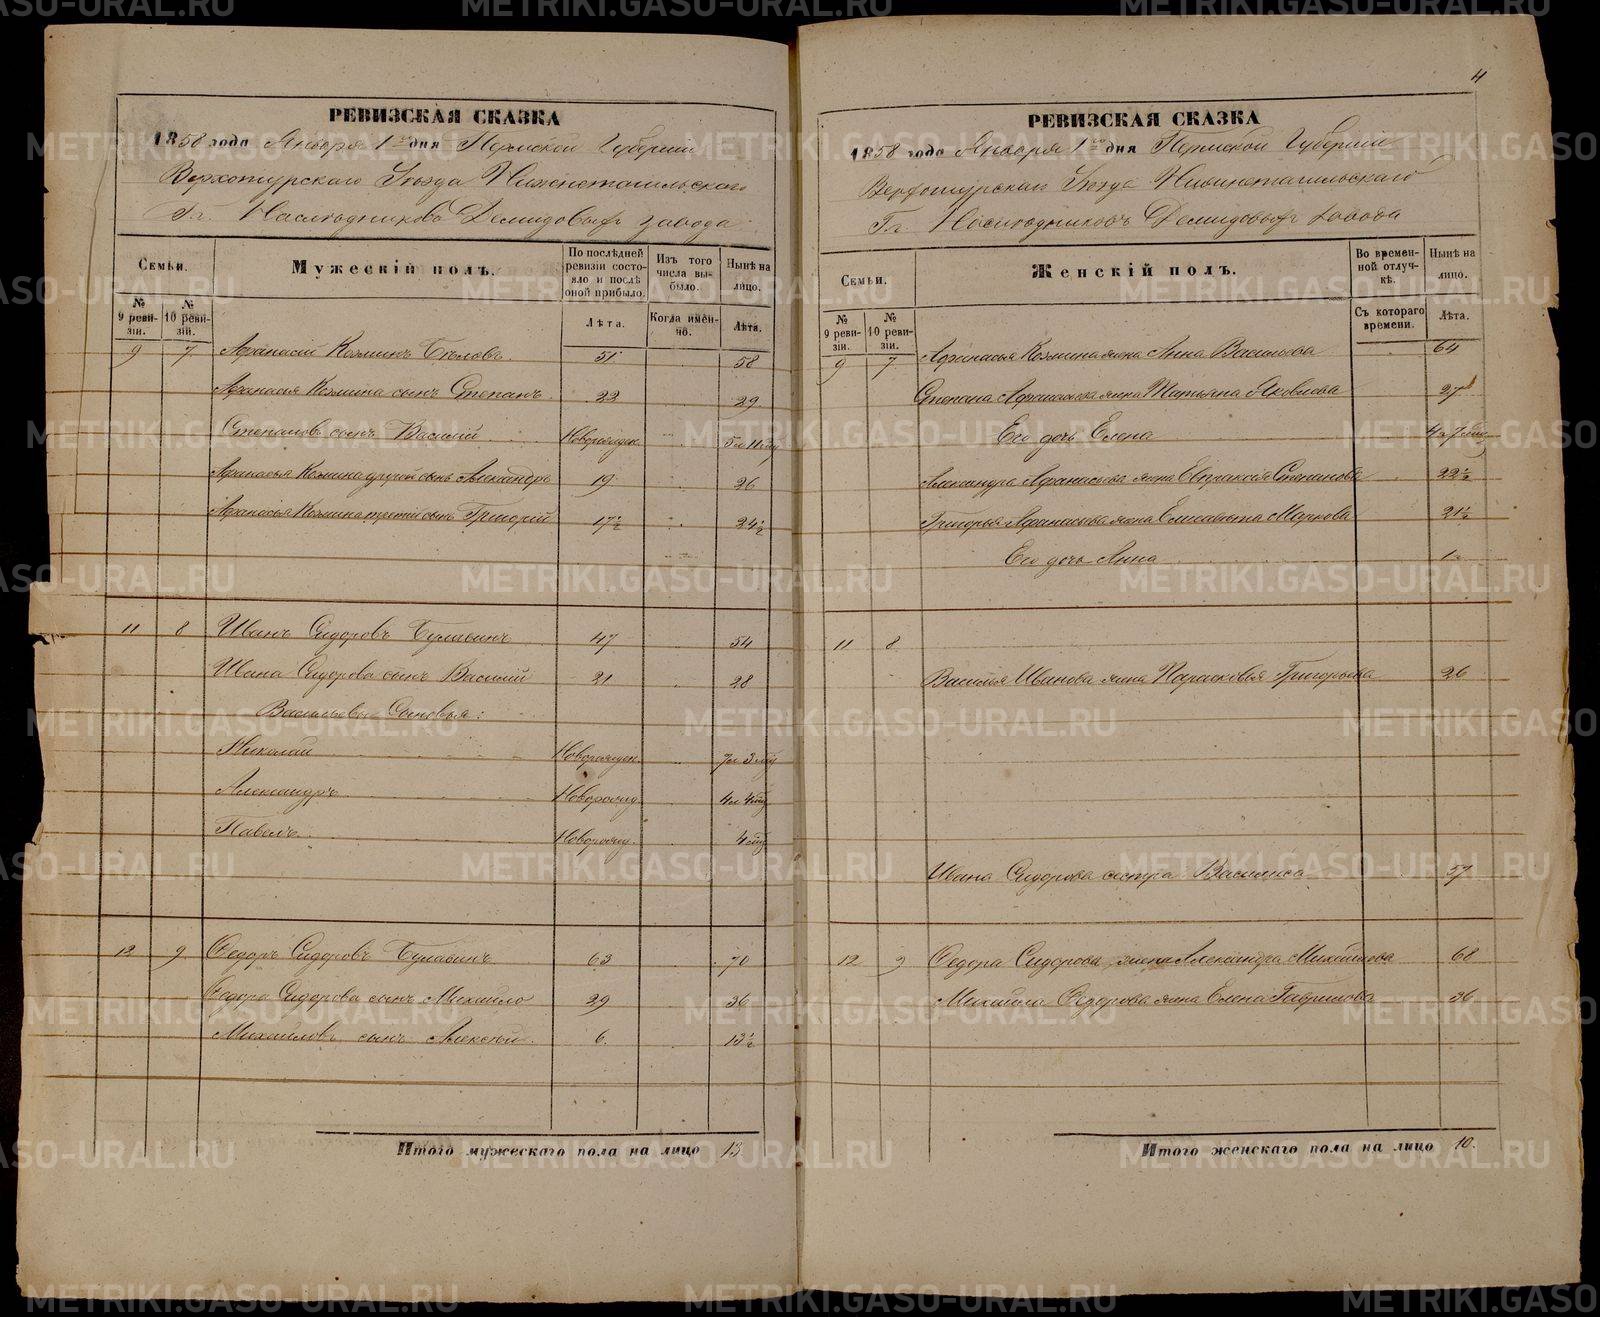 4
РЕВИЗСКАЯ СКАЗКА
1858 года Января 1го дня Пермской Губерніи
Верхотурскаго Уѣзда Нижнетагильскаго
Гг. Наслѣдниковъ Демидовыхъ завода
Семьи.
Мужескій полъ.
По послѣдней ревизіи состояло и послѣ оной прибыло.
Изъ того числа выбыло.
Нынѣ на лицо.
№ 9 ревизіи.
№ 10 ревизіи.
Лѣта.
Когда именно.
Лѣта.
9 7 Афанасій Козминъ Бѣловъ 51 58
Афанасія Козмина сынъ Степанъ 22 29
Степановъ сынъ Василій Новорожден. 5 л 11 мѣ
Афанасья Козмина другой сынъ Александръ 19 26
Афанасья Козмина третій сынъ Григорій 17½ 24½
11 8 Иванъ Сидоровъ Булавинъ 47 54
Ивана Сидорова сынъ Василій 21 28
Васильевы Сыновья:
Николай Новорожден. 7 л 3 мѣ
Александръ Новорожд. 4 л 4 мѣ
Павелъ Новорожд. 4 мѣ
12 9 Ѳедоръ Сидоровъ Булавинъ 63 70
Ѳедора Сидорова сынъ Михайло 29 36
Михайловъ сынъ Алексѣй 6. 13½
Итого мужескаго пола на лицо 13.
РЕВИЗСКАЯ СКАЗКА
1858 года Января 1го дня Пермской Губерніи
Верхотурскаго Уѣзда Нижнетагильскаго
Гг. Наслѣдниковъ Демидовыхъ завода
Семьи.
Женскій полъ.
Во временной отлучкѣ.
Нынѣ на лицо.
№ 9 ревизіи.
№ 10 ревизіи.
Съ котораго времени.
Лѣта.
9 7 Афанасья Козмина жена Анна Васильева 64
Степана Афанасьева жена Татьяна Яковлева 27
Его дочь Елена 4 л 7 мѣ
Александра Афанасьева жена Евпраксія Степанова 22½
Григорья Афанасьева жена Елисавета Маркова 21½
Его дочь Анна 1 л
11 8
Василья Иванова жена Парасковья Григорьева 26
Ивана Сидорова сестра Василиса 57
12 9 Ѳедора Сидорова жена Александра Михайлова 68
Михайла Ѳедорова жена Елена Гаврилова 36
Итого женскаго пола на лицо 10.
METRIKI.GASO-URAL.RU